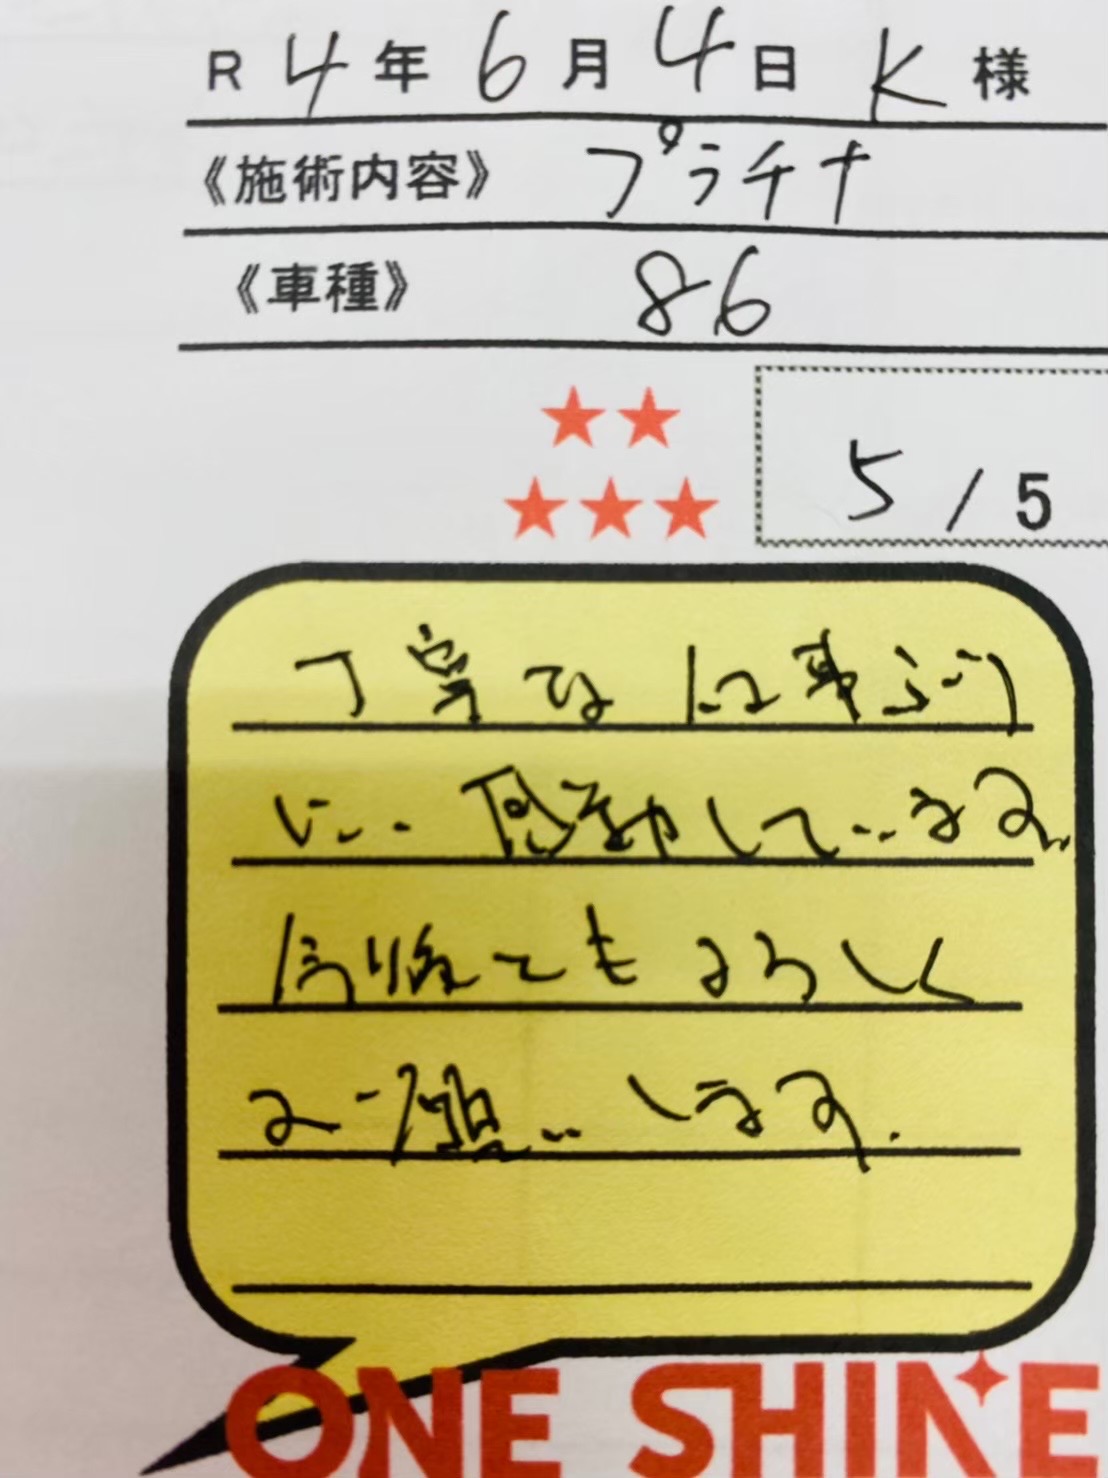 R 4年 6月 4日 K 様
《施術内容》 プラチナ
《車種》 86
5 / 5
丁寧な仕事ぶり
にいつも感動しています
今後ともよろしく
お願いします.
ONE SHINE